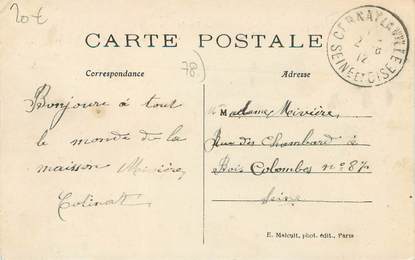 20€
CARTE POSTALE
CERNAY LA VILLE
SEINE ET OISE
12
78
Correspondance
Adresse
Bonjour à tout
le monde de la
maison Mivière,
Colinat
Madame Mivière,
Rue des Chambard à
Bois Colombes n° 87
Seine
E. Malcuit, phot. édit., Paris